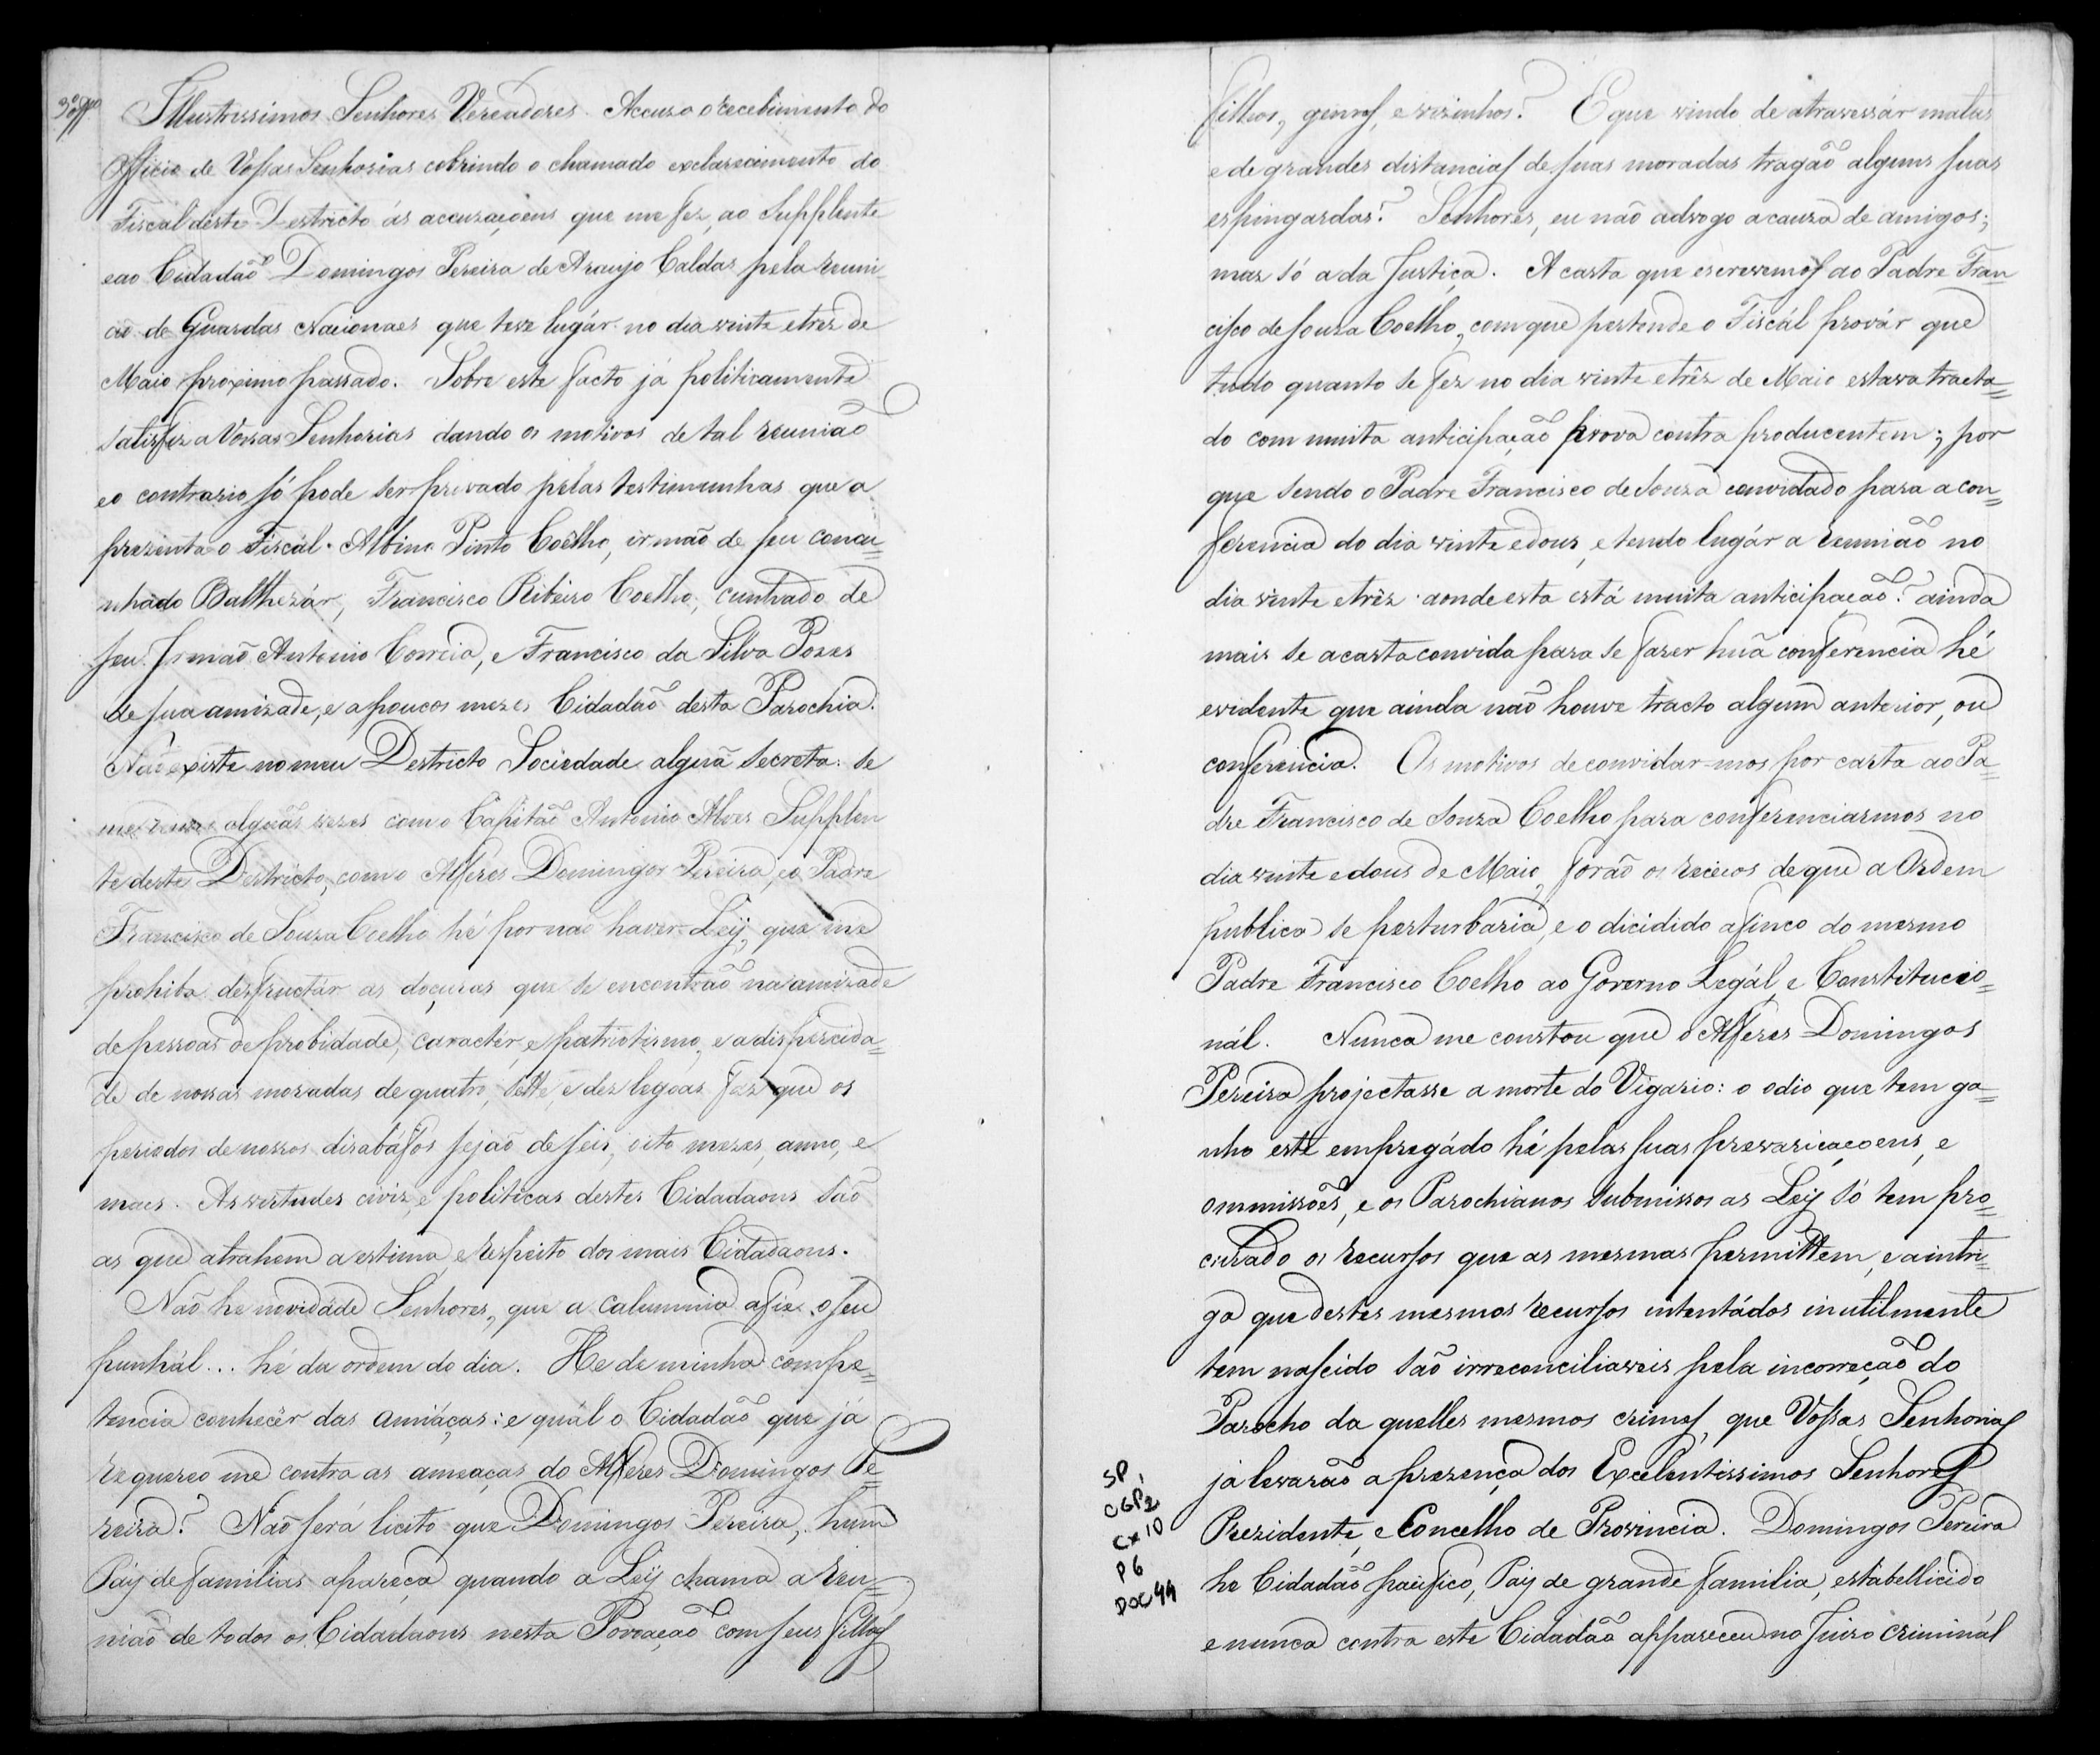 Illustrissimos Senhores Vereadores. Accuzo o recebimento do
Officio de Vossas Senhorias cobrindo o chamado exclarecimento do
Fiscal deste Destricto ás accuzaçoens que me fez, ao Supplente
eao Cidadaõ Domingos Pereira de Araujo Caldas pela reuni-
aõ de Guardas Nacionaes que teve lugár no dia vinte etrês de
Maio proximo passado. Sobre este facto já politicamente
satisfiz a Vossas Senhorias dando os motivos de tal reuniaõ
eo contrario só pode ser provado pelas testimunhas que a
prezenta o Fiscál. Albino Pinto Coêlho, irmaõ de seu concu=
nhado Balthezár, Francisco Ribeiro Coelho, cunhado de
seu Irmaõ Antonio Correia, e Francisco da Silva Pozes
de sua amizade, e a poucos mezes Cidadaõ desta Parochia.
Naõ existe no meu Destricto Sociedade alguã secreta: se
me reuno alguãs vezes com o Capitaõ Antonio Alves Supplen
te deste Destricto, com o Alferes Domingos Pereira, eo Padre
Francisco de Souza Coelho hé por naõ haver Leÿ, que me
prohiba desfructár as doçuras que se encontraõ na amizade
de pessoas de probidade, caractér, e patriotismo, e a dispercida=
de de nossas moradas de quatro, sette, e dez legoas faz que os
periodos de nossos dizabafos sejaõ de seis, oito mezes, anno, e
maes. As virtudes civiz, e politicas destes Cidadaons saõ
as que atrahem a estima, e respeito dos mais Cidadaons.
Naõ he novidade Senhores, que a calumnia afie o seu
punhál... hé da ordem do dia. He de minha compe=
tencia conhecêr das amiáças: e quál o Cidadaõ que já
requereo me contra as ameaças do Alferes Domingos Pe=
reira? Naõ será licito que Domingos Pereira, hum
Paÿ de familias apareça quando a Leÿ chama a reu=
niaõ de todos os Cidadaons nesta Povoaçaõ com seus filhos
filhos, genros, e vizinhos? E que vindo de atravessár matas
e de grandes distancias de suas moradas tragaõ alguns suas
espingardas? Senhores, eu naõ advogo a cauza de amigos;
mas só a da Justiça. A carta que escrevemos ao Padre Fran
cisco de Souza Coelho, com que pertende o Fiscál prová́r que
tudo quanto se fez no dia vinte etrêz de Maio estava tracta=
do com muita anticipaçaõ prova contra producentem; por
que sendo o Padre Francisco de Souza convidado para a con=
ferencia do dia vinte edous, e tendo lugár a reuniaõ no
dia vinte etrêz. aonde esta está muita anticipaçaõ? ainda
mais se a carta convida para se fazer huã conferencia hé
evidente que ainda naõ houve tracto algum anterior, ou
conferencia. Os motivos de convidar-mos por carta ao Pa=
dre Francisco de Souza Coelho para conferenciarmos no
dia vinte edous de Maio, foraõ os receios de que a Ordem
publica se perturbaria, e o dicidido afinco do mesmo
Padre Francisco Coelho ao Governo Legál, e Constitucio=
nál. Nunca me constou que o Alferes Domingos
Pereira projectasse a morte do Vigario: o odio que tem ga=
nho este empregádo hé pelas suas prevaricaçoens, e
ommissoẽs, e os Parochianos submissos as Leÿ só tem pro=
curado os recursos que as mesmas permittem, e a intri=
ga que destes mesmos recursos intentádos inutilmente
tem nascido saõ irreconciliaveis pela incorreçaõ do
Parocho da quelles mesmos crimes, que Vossas Senhorias
já levaraõ a prezença dos Excelentissimos Senhores
Prezidente, e Concelho de Provincia. Domingos Pereira
he Cidadaõ pacifico, Paÿ de grande familia, estabellicido
e nunca contra este Cidadaõ appareceu no Juizo Criminál
SP,
CGP2
Cx 10
P6
DOC 44